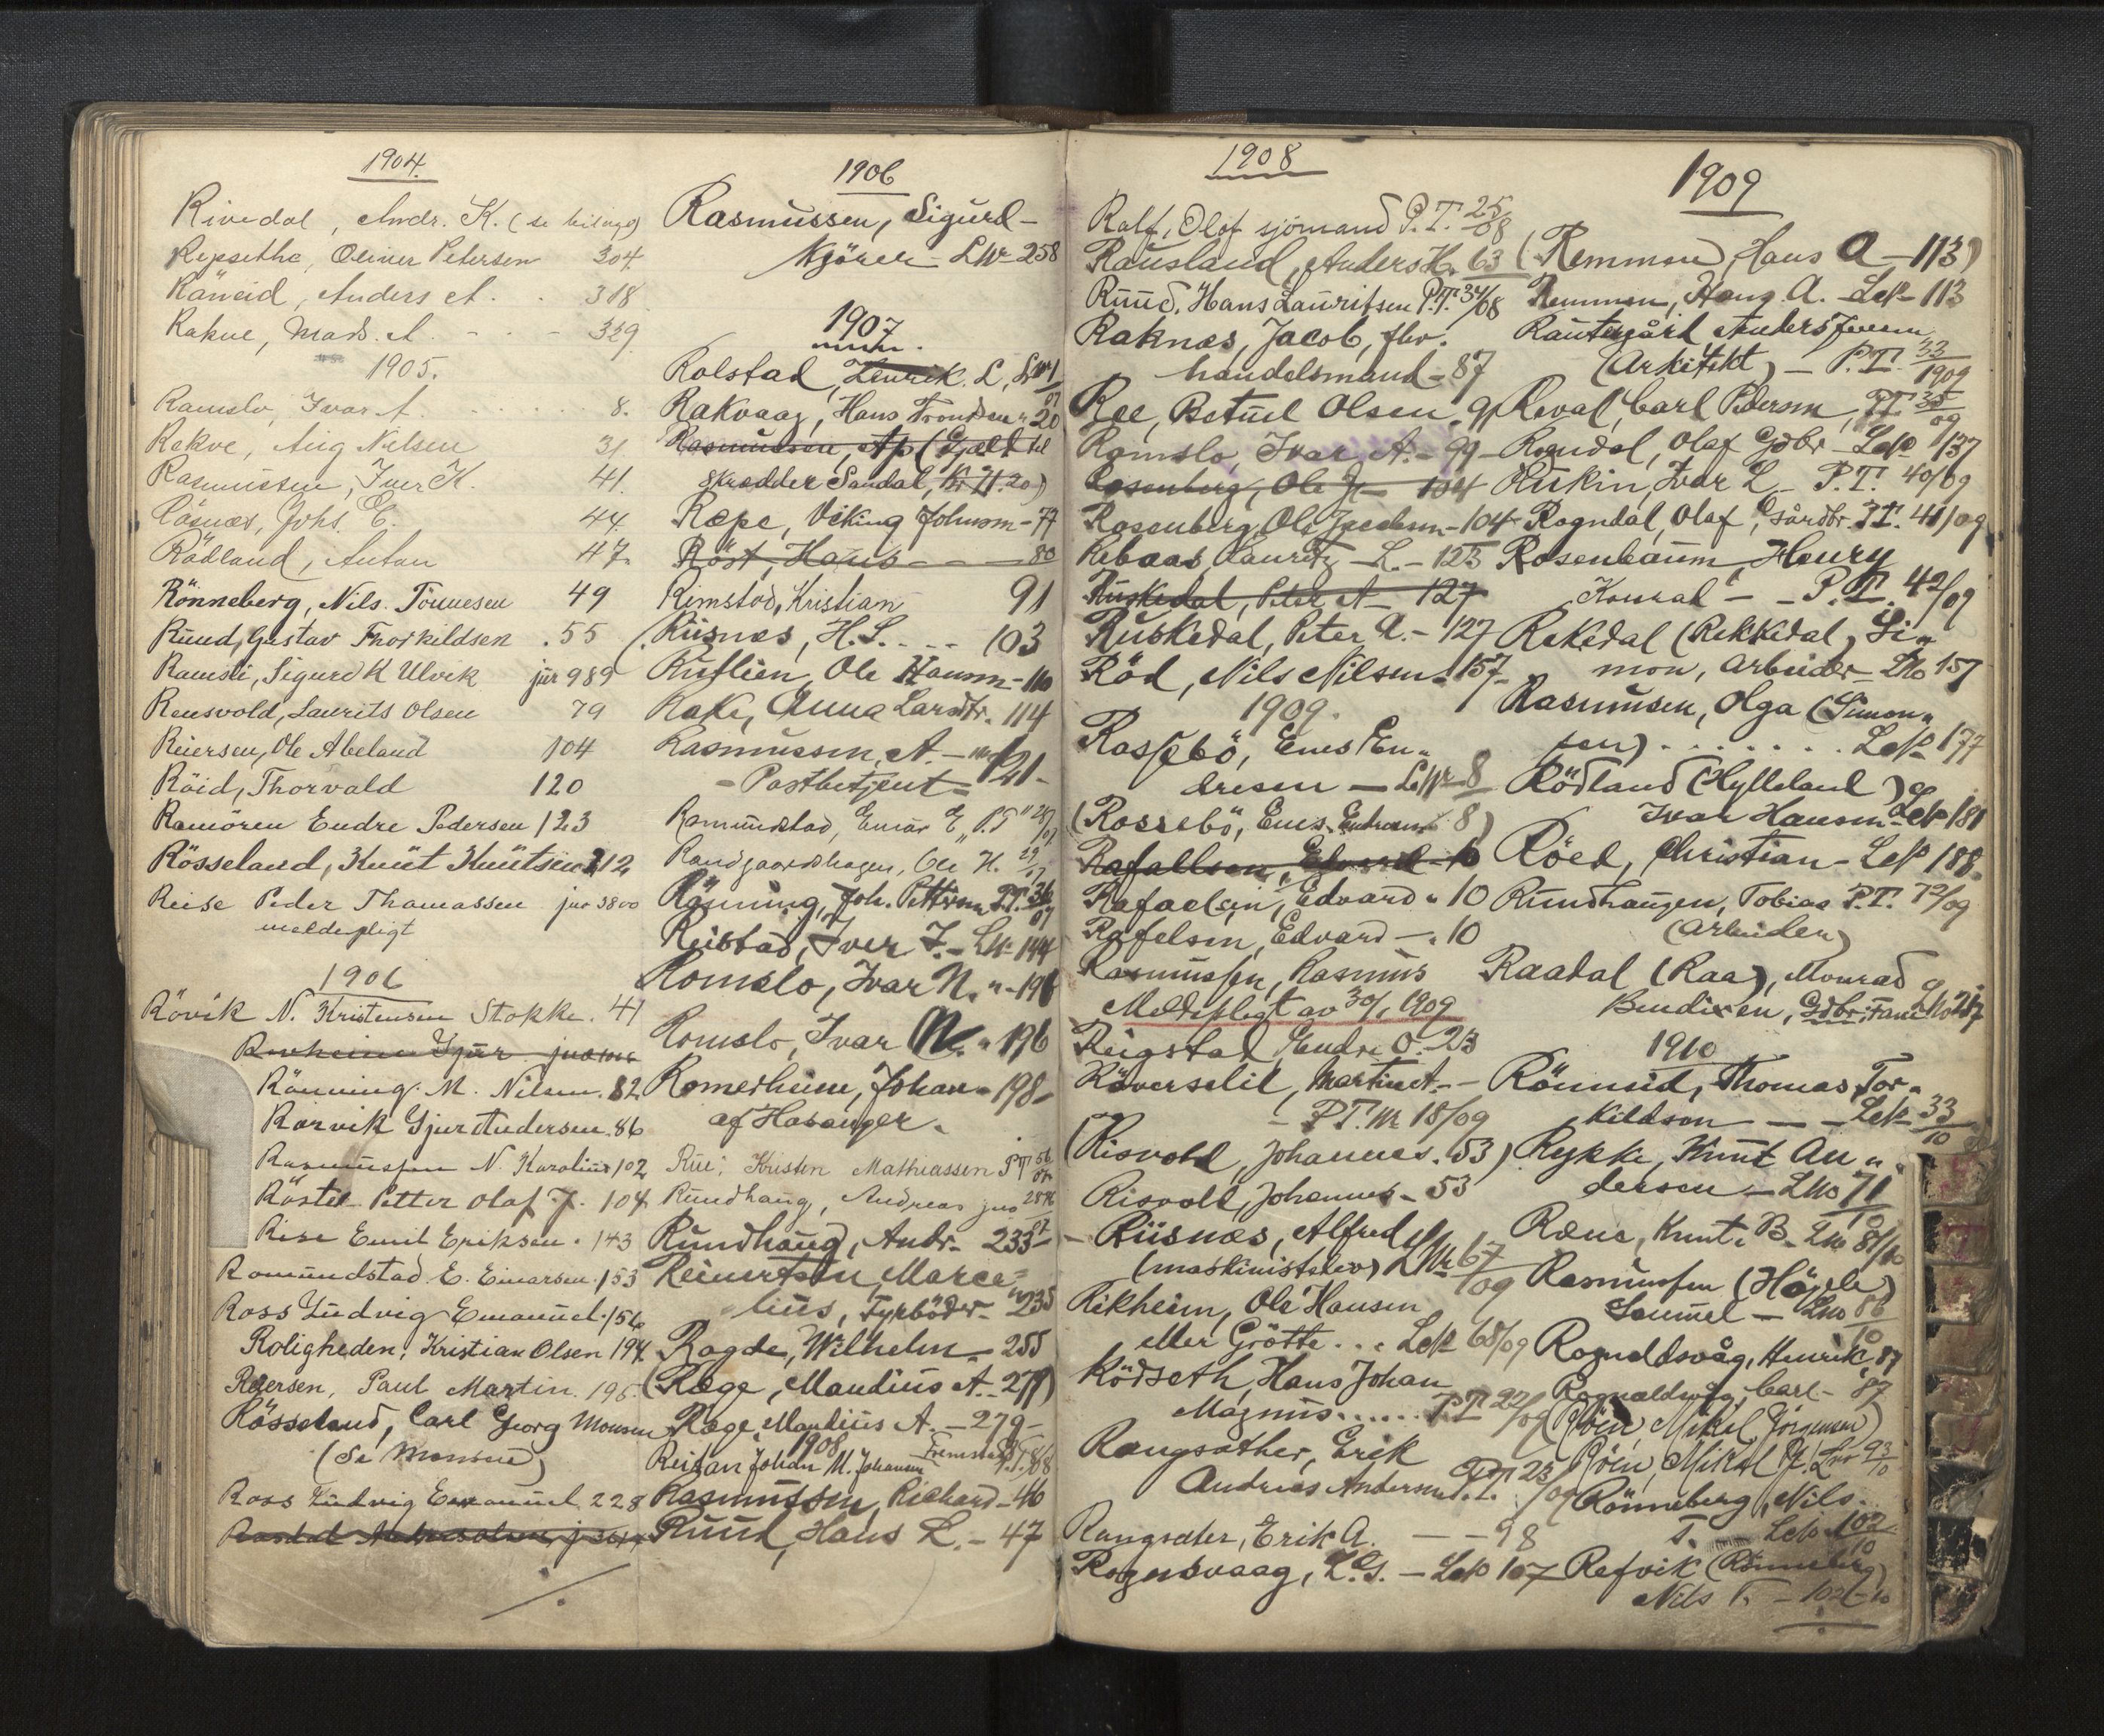 1904.
Rivedal, Andr. K. (se bilage)
Repsethe, Oliver Petersen 304
Råneid, Anders A. 318
Rakne, Mads. A. - - - 329
1905.
Ramslo, Ivar A. 8.
Rekve, Aug Nilsen 31
Rasmussen, Iver K. 41.
Råsnæs, Johs. E. 44.
Rödland, Anton 47.
Rönneberg, Nils. Tönnesen 49
Ruud, Gustav Thorkildsen .55
Ramsli, Sigurd K Ulvik jur 989
Rensvold, Laurits Olsen 79
Reiersen, Ole Abeland 104
Röid, Thorvald 120
Ramören Endre Pedersen 123
Rösseland, Knüt Knütsen 212
Reise Peder Thomassen jur 3800
meldepligt
1906
Rövik N. Kristensen Stokke. 41
Rönning. M. Nilsen. 82
Rörvik Gjert Andersen. 86
Rasmussen N. Karolius 102
Röstel Petter Olaf J. 104
Rise Emil Eriksen. 143
Romündstad E. Einarsen. 153
Ross Lüdvig Emanuel. 156
Roligheden, Kristian Olsen 194
Reiersen, Paul Martin. 195.
Rösseland, Carl Georg Monsen
(Se Monsen)
Ross Lüdvig Emanuel 228
1906
Rasmussen, Sigurd -
Kjörer - LNr 258
1907
Rolstad, Henrik. L, LNr 1/07
Rakvaag, Hans Trondsen " 20
Rasmussen, Ap (Gjeld til
Skrædder Sandal, Kr 71.20)
Ræpe, Viking Johnsen - 77
Röst, Hans - - - 80
Rimstad, Kristian 91
(Riisnæs, H. S. - - - 103
Rutlien, Ole Hansen - 110
Rake, Anna Larsdtr. 114
Rasmussen, A. - 121 -
- Postbetjent -
Romundstad, Einar E, P.T 28/07
Rundgaardshagen, Ole H. 29/07
Rönning, Joh. Pettersen P.T. 36/07
Reistad, Iver J. - LNr 144
Romslo, Ivar N. " - 196
Romslo, Ivar N. " 196
Romerheim, Johan - 198 -
af Hosanger.
Rüe, Kristen Mathiassen P.T 56/07
Rundhaug, Andreas jno 2876/07
Rundhaug, Andr. 233 -
Reinertsen, Marce-
lius, Fyrböder - 235
Ragde, Wilhelm - 255
(Ræge, Maudius A. - 279)
Ræge, Maudius A. - 279 -
1908
Reitan Johan M. Johansen P.T. 8/08
Rasmussen, Richard - 46
Ruud, Hans L. - 47
1908
Ralf, Olof sjömand P.T. 25/08
Rausland, Anders H. 63
Ruud, Hans Lauritsen P.T. 34/08
Raknæs, Jacob, fhv.
handelsmand - 87
Ree, Betuel Olsen . 91
Romslo, Ivar A. - 99 -
Rosenberg, Ole J - 104
Rosenberg, Ole Jacobsen - 104
Rebaas, Lauritz - L. - 123
Ruskedal, Peter A - 127
Ruskedal, Peter A. - 127
Röd, Nils Nilsen - 157 -
1909.
Rossebö, Enes En-
dresen - LNr 8
(Rossebö, Enes Endresen 8)
Rafaelsen, Edvard - 10
Rafaelsen, Edvard " 10
Rafelsen, Edvard - . 10
Rasmussen, Rasmus
Meldepligt av 30/1 1909
Reigstad, Endre O. - 23
Röverselil, Martin A. -
- P.T. Nr 18/09
(Risvold, Johannes. 53)
Risvold, Johannes - 53
- Riisnæs, Alfred
(maskinistelev) LNr 67/09
Rikheim, Ole Hansen
eller Grötte ... LNr 68/09
Rödseth, Hans Johan
Magnus ...... P.T 22/09
Rangsæther, Erik
Andreas Andersen P.T. 23/09
Rangsæter, Erik A. - - 98
Rognsvaag, L. S. - LNr 107
1909
(Remmen, Hans A - 113)
Remmen, Hans A. - LNr 113
Rautergård, Anders Jensen
(Arkitekt) - P.T. 33/1909
Reval, Carl Pedersen, P.T. 35/09
Rogndal, Olaf Gdbr - LNr 137
Rükin, Ivar L - P.T. 40/09
Rogndal, Olaf, Gårdbr. P.T. 41/09
Rosenbaum, Henry
Konrad - - P.T. 42/09
Rekedal (Rekkedal), Si-
mon, arbeider - LNo 157
Rasmussen, Olga (Simon-
sen) ........ LNr 177
Rödland (Hylleland)
Ivar Hansen - LNr 181
Röed, Christian - LNr 188.
Rundhaugen, Tobias P.T. 72/09
(arbeider)
Raadal (Raa), Monrad
Bendixen, Gdbr. Fane LNo 257
1910
Rönnild, Thomas Tor-
kildson - - LNr 33/10
Rykke, Knut An-
dersen - LNo 71/10
Ræne, Knut. B - LNo 81/10
Rasmussen (Höjele)
Samuel - LNo 86/10
Rognaldsvåg, Henrik 87
Rognaldsvåg, Carl - 87
(Röen, Mikal Jörgensen)
Röen, Mikal J. LNr 93/10
Rönneberg, Nils.
T. - LNr 102/10
Refvik (Rönneberg)
Nils T. - 102/10